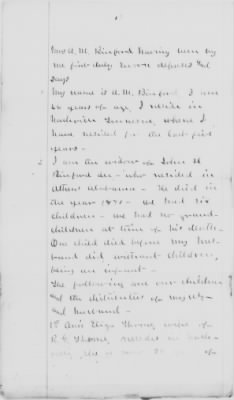 Mrs A. M. Binford having been by
me first duly sworn deposes and
says
1 My name is A. M. Binford I am
years of age, I reside in
Nashville Tennessee, where I
have resided for the last five
years.
2 I am the widow of John H
Binford dec - who resided in
Athens Alabama - He died in
the year 187 - We had six
children - we had no grand-
children at time of his death -
One child died before my hus-
band did without children,
being an infant -
The following are our children
and the distributees of my
husband -
1st Ann Eliza Thorne, wife of
R. C. Thorne, resides in
she is of